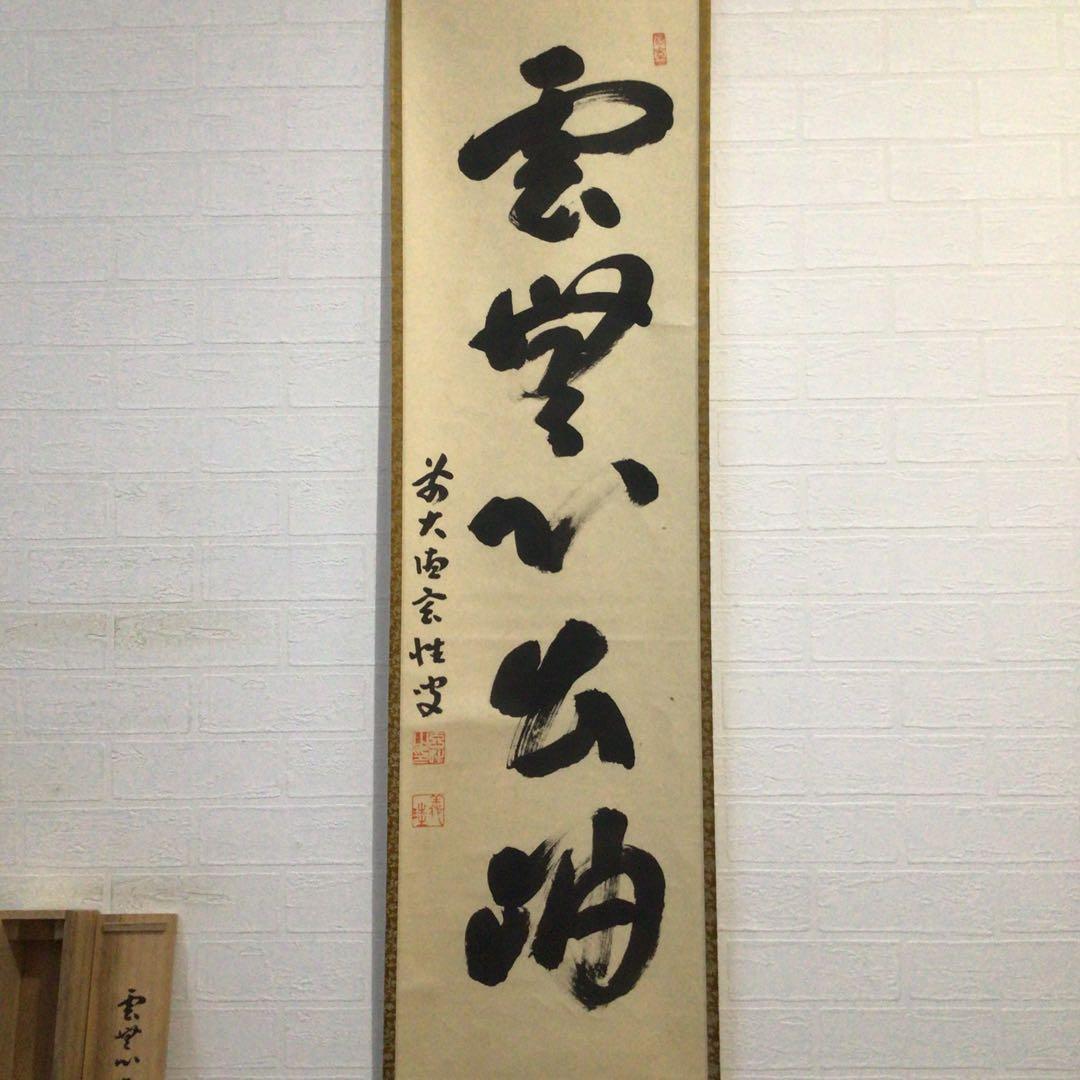 雲無心出岫
前大徳玄性叟
雲無心